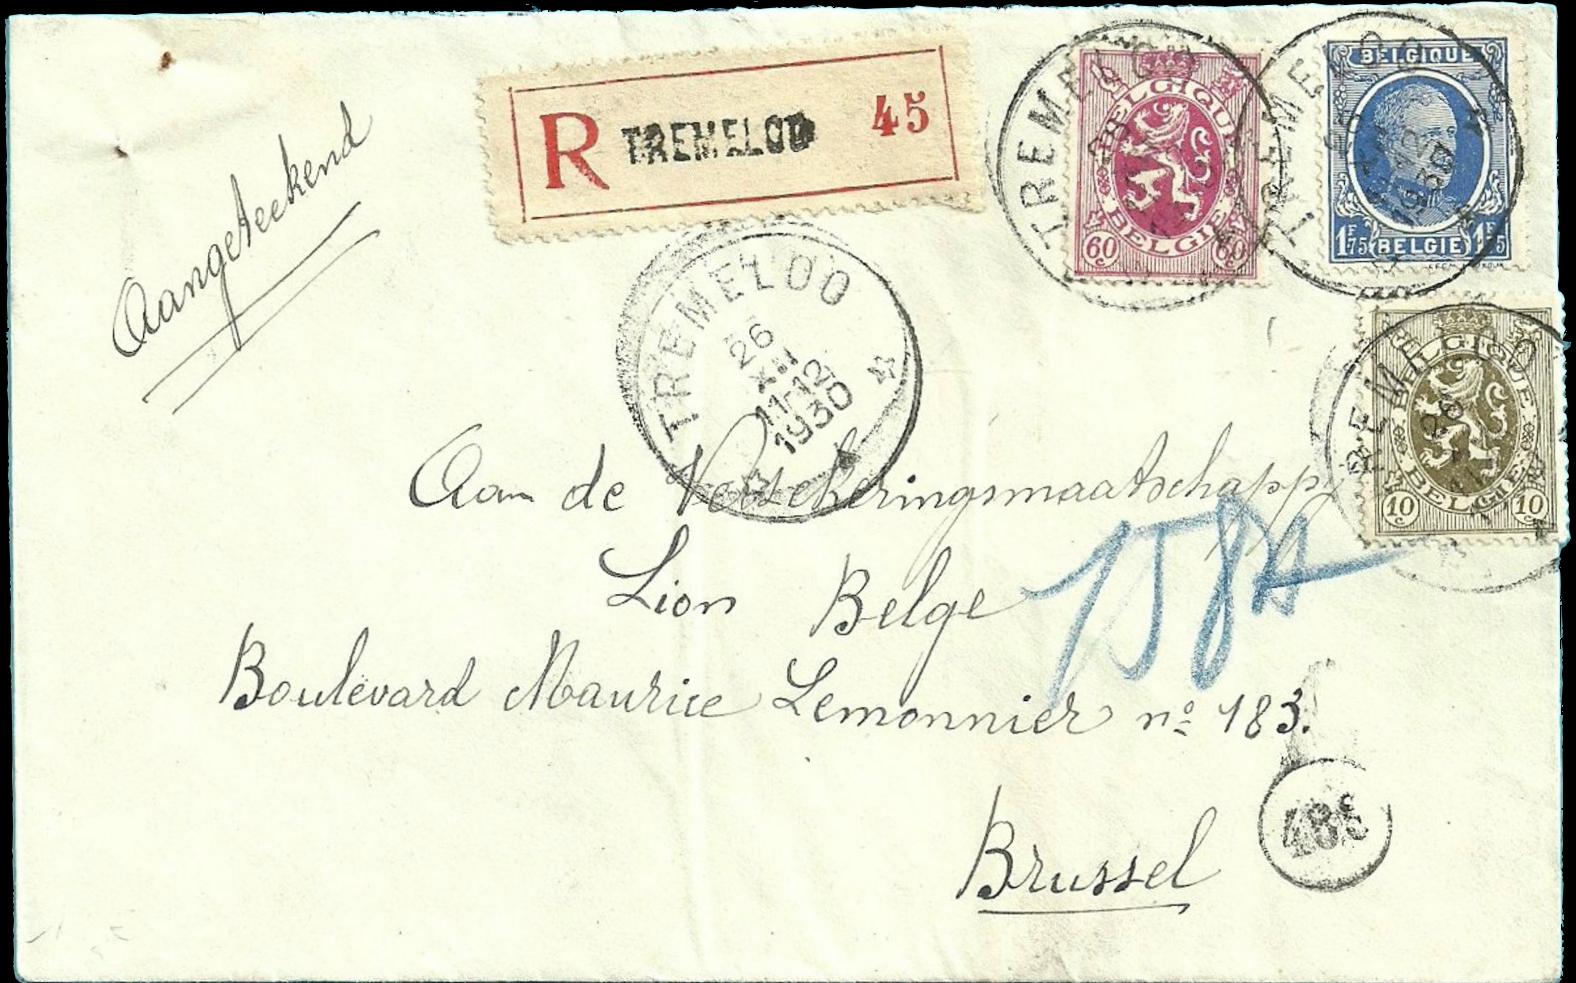 Aangeteekend
R TREMELOO 45
TREMELOO
26
XII
11-12
1930
TREMELOO
BELGIQUE
60 c BELGIE 60 c
TREMELOO
BELGIQUE
12
1930
1F75 BELGIE 1F75
TREMELOO
BELGIQUE
26
10 c BELGIE 10 c
Aan de Verscheringsmaatschappy
Lion Belge
Boulevard Maurice Lemonnier nº 183.
Brussel